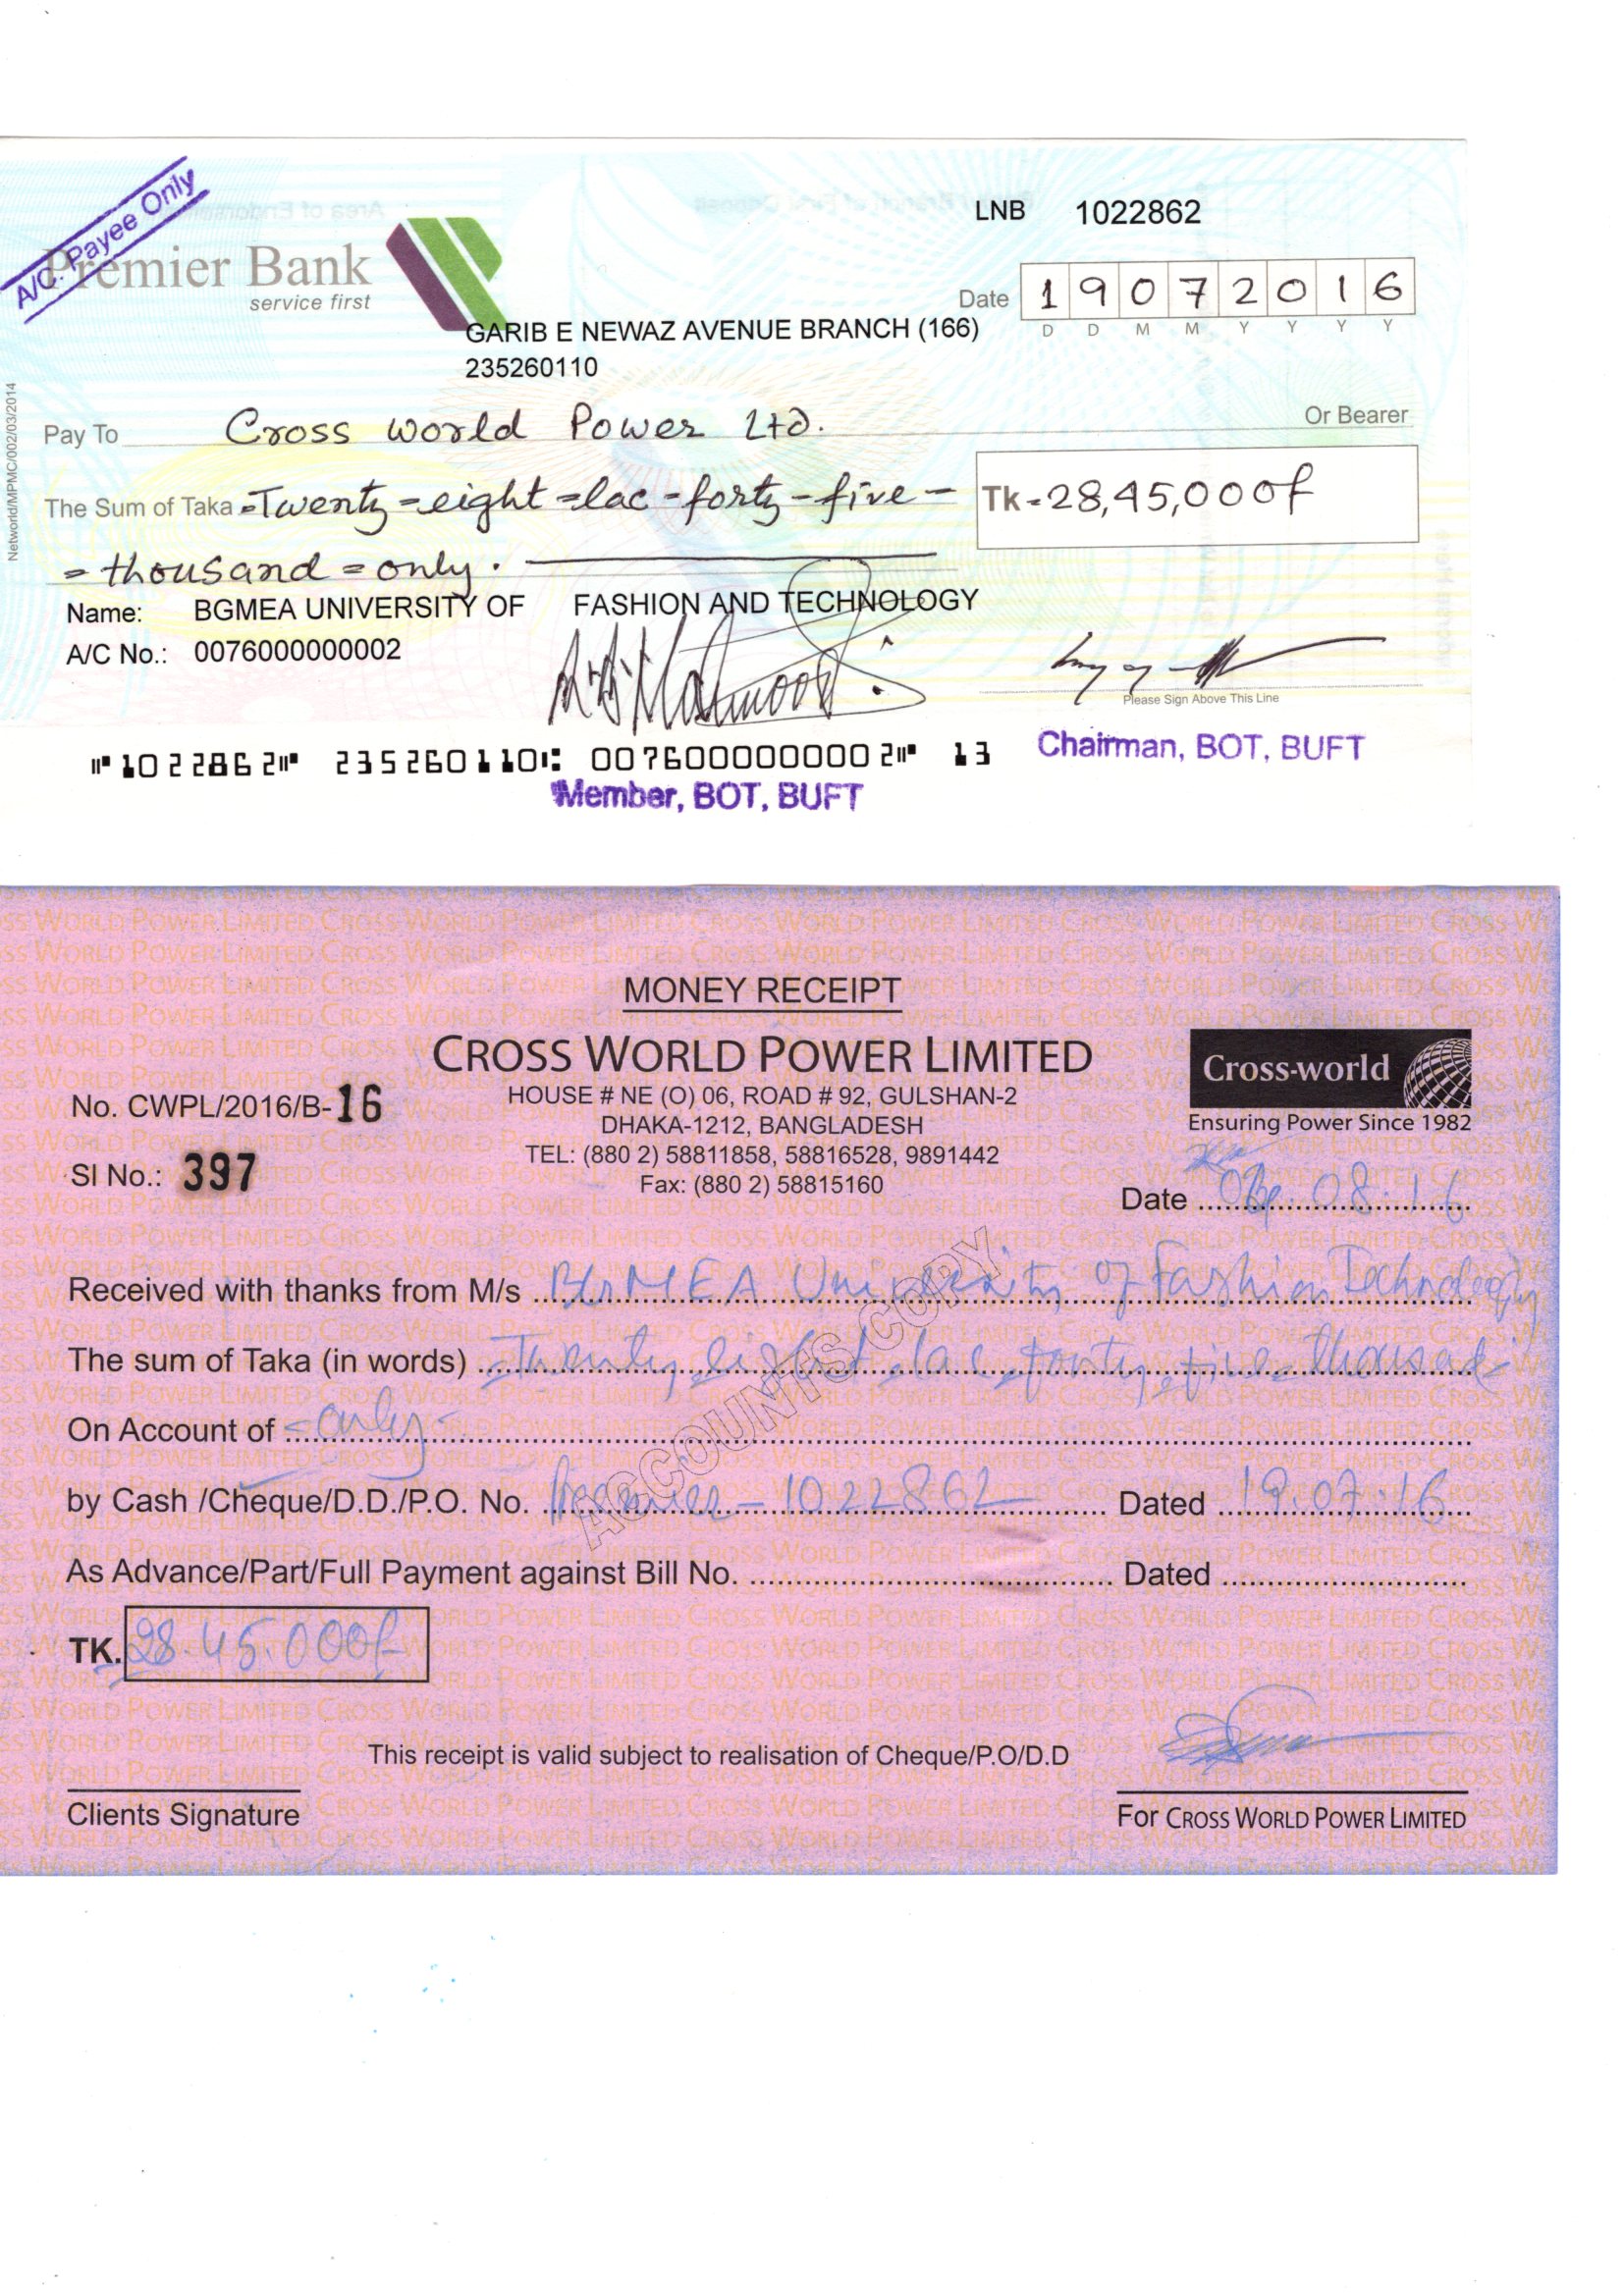 A/C. Payee Only
Premier Bank
service first
LNB 1022862
Date 19072016
D D M M Y Y Y Y
GARIB E NEWAZ AVENUE BRANCH (166)
235260110
Networld/MPMC/002/03/2014
Pay To Cross world Power Ltd. Or Bearer
The Sum of Taka =Twenty=eight=lac=forty-five-
Tk-28,45,000/-
=thousand=only.
Name: BGMEA UNIVERSITY OF FASHION AND TECHNOLOGY
A/C No.: 0076000000002
Please Sign Above This Line
Chairman, BOT, BUFT
⑈1022862⑈ 235260110⑆ 0076000000002⑈ 13
Member, BOT, BUFT
MONEY RECEIPT
CROSS WORLD POWER LIMITED
HOUSE # NE (O) 06, ROAD # 92, GULSHAN-2
DHAKA-1212, BANGLADESH
TEL: (880 2) 58811858, 58816528, 9891442
Fax: (880 2) 58815160
No. CWPL/2016/B-16
Sl No.: 397
Cross-world
Ensuring Power Since 1982
Date 08.16
Received with thanks from M/s BGMEA University of Fashion Technology
The sum of Taka (in words) Twenty eight lac forty five thousand
On Account of =only-
by Cash /Cheque/D.D./P.O. No. Premier - 1022862 Dated 19.07.16
As Advance/Part/Full Payment against Bill No. Dated
TK. 28.45.000/-
ACCOUNTS COPY
This receipt is valid subject to realisation of Cheque/P.O/D.D
Clients Signature
For CROSS WORLD POWER LIMITED